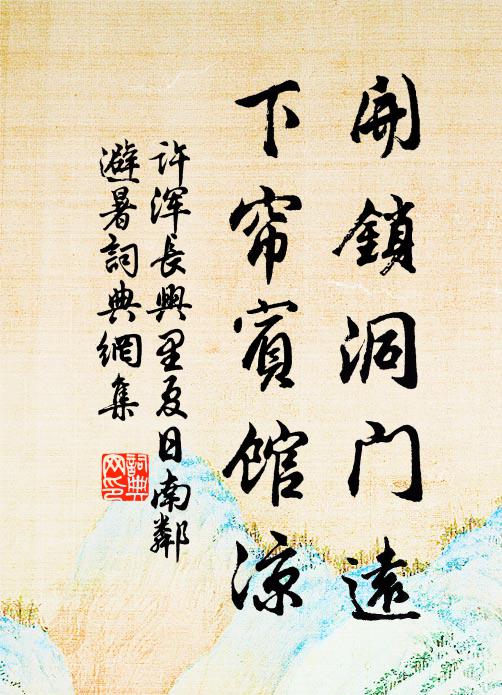 開鎖洞門遠
下帘賓館涼
許渾長興里夏日南鄰
避暑詞典網集
詞典
网印